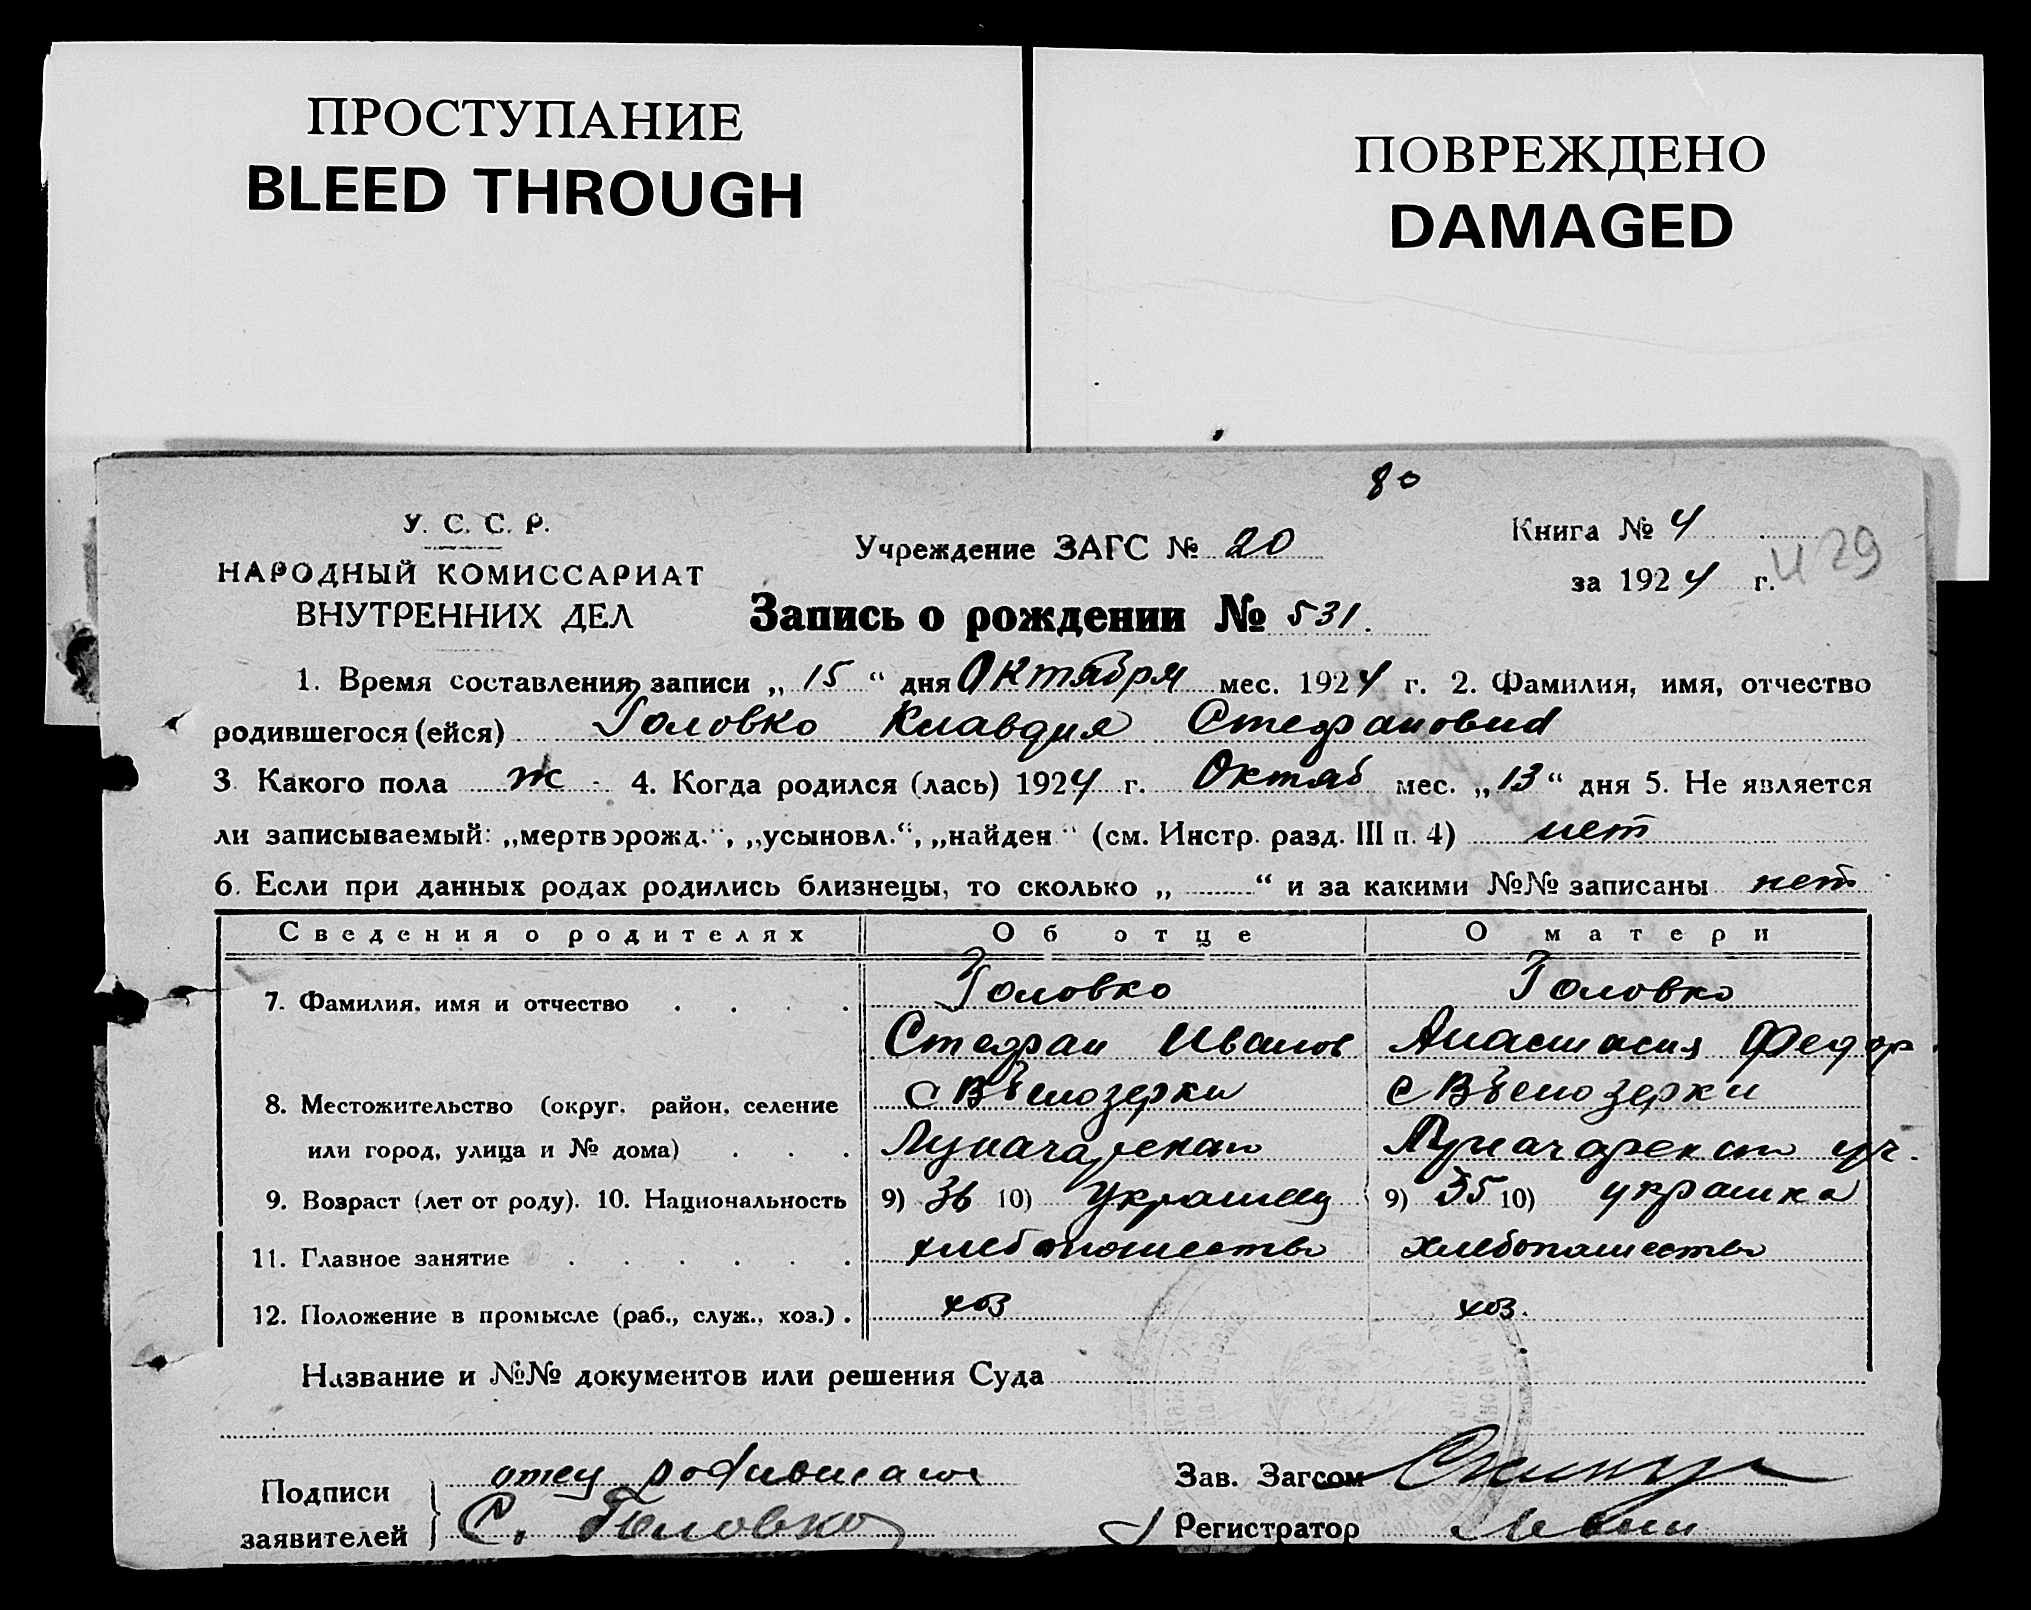 ПРОСТУПАНИЕ
BLEED THROUGH
ПОВРЕЖДЕНО
DAMAGED
80
У. С. С. Р.
НАРОДНЫЙ КОМИССАРИАТ
ВНУТРЕННИХ ДЕЛ
Учреждение ЗАГС № 20
Книга № 4
за 1924 г.
Запись о рождении № 531.
1. Время составления записи „ 15 “ дня Октября мес. 1924 г. 2. Фамилия, имя, отчество
родившегося (ейся) Головко Клавдия Стефановна
3. Какого пола ж 4. Когда родился (лась) 1924 г. Октяб мес. „ 13 “ дня 5. Не является
ли записываемый: „мертворожд.“, „усыновл.“, „найден“ (см. Инстр. разд. III п. 4) нет
6. Если при данных родах родились близнецы, то сколько „ “ и за какими №№ записаны нет
Сведения о родителях Об отце О матери
7. Фамилия, имя и отчество Головко Головко
Стефан Иванов Анастасия Федор.
8. Местожительство (округ, район, селение с Вѣлозерки с Вѣлозерки
или город, улица и № дома) Луначарская Луначарская ул.
9. Возраст (лет от роду). 10. Национальность 9) 36 10) Украинец 9) 35 10) украинка
11. Главное занятие хлебопашество хлебопашество
12. Положение в промысле (раб., служ., хоз.) хоз хоз.
Название и №№ документов или решения Суда
Подписи
заявителей
отец
С. Головко
Зав. Загсом
Регистратор